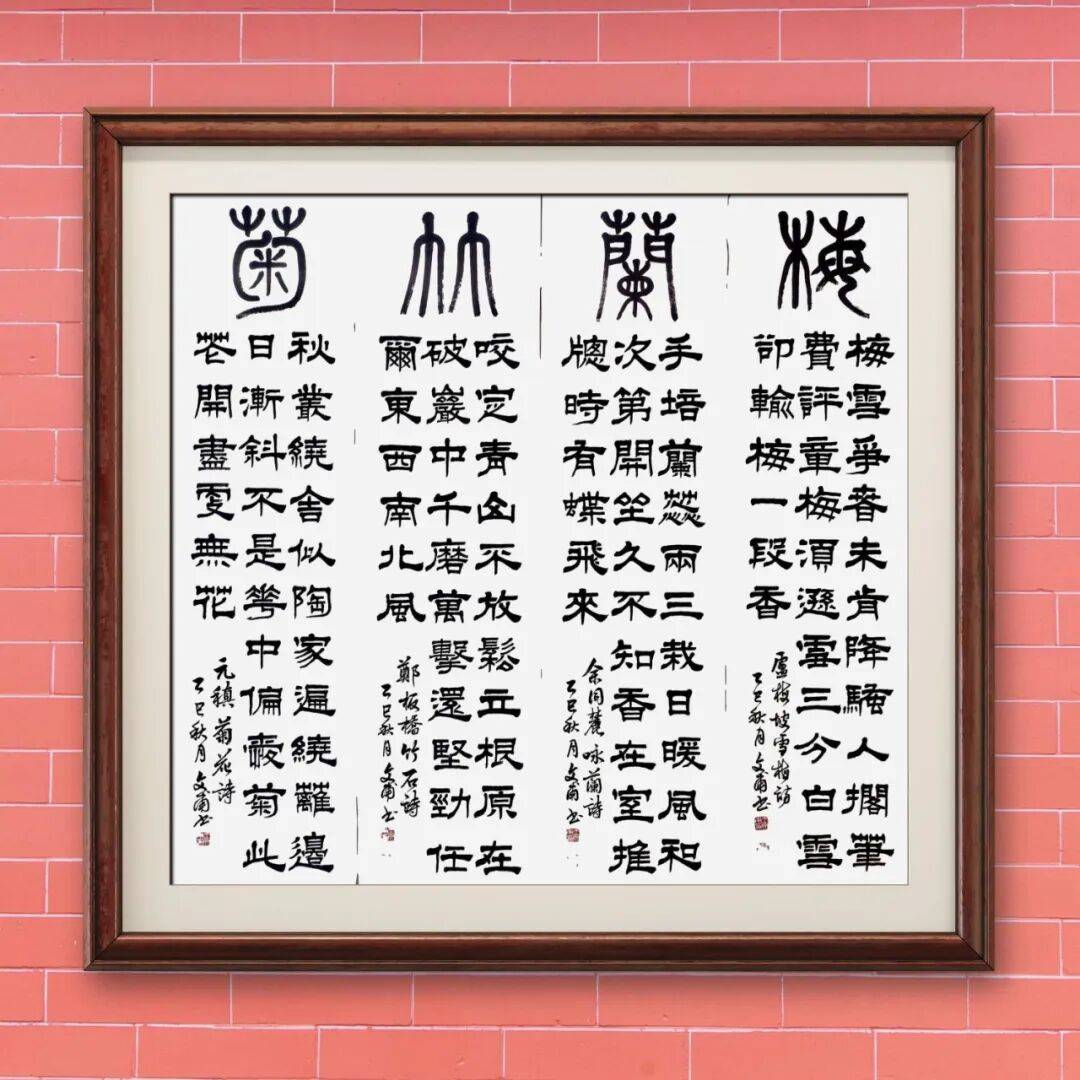 梅
梅雪爭春未肯降騷人擱筆
費評章梅須遜雪三分白雪
卻輸梅一段香
盧梅坡雪梅詩
乙巳秋月文甫書
蘭
手培蘭蕊兩三栽日暖風和
次第開坐久不知香在室推
牕時有蝶飛來
余同麓咏蘭詩
乙巳秋月文甫書
竹
咬定青山不放鬆立根原在
破巖中千磨萬擊還堅勁任
爾東西南北風
鄭板橋竹石詩
乙巳秋月文甫書
菊
秋叢繞舍似陶家遍繞籬邊
日漸斜不是花中偏愛菊此
花開盡更無花
元稹菊花詩
乙巳秋月文甫書